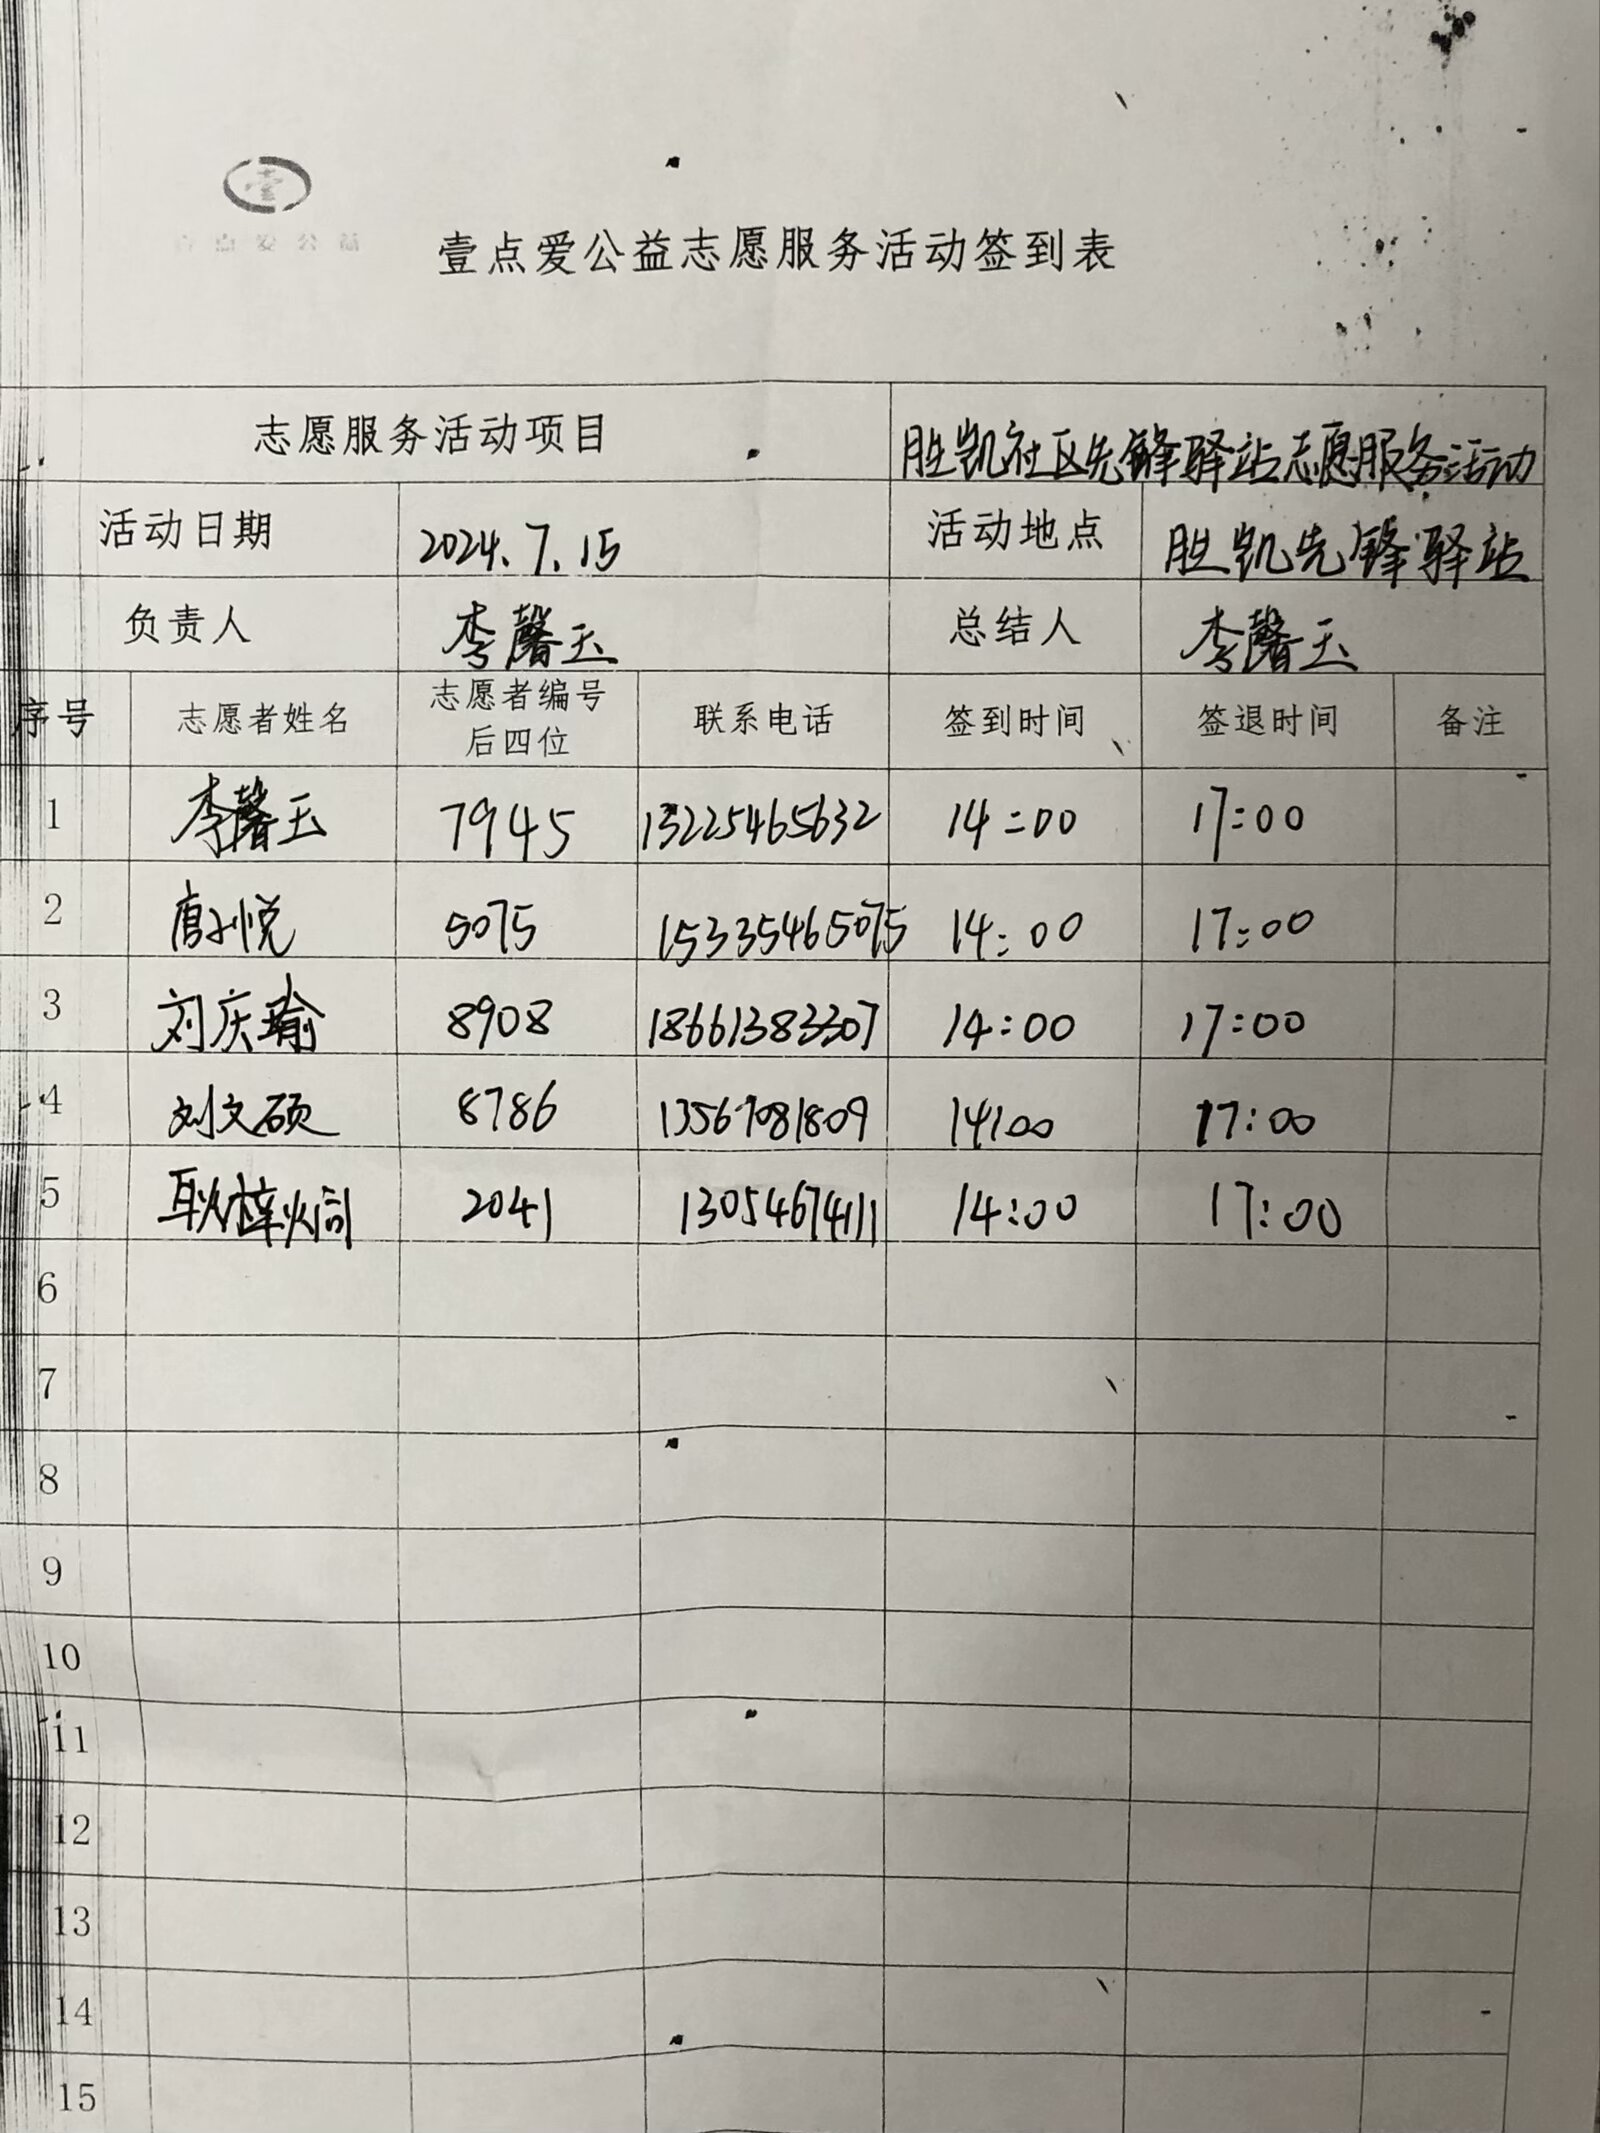 壹
壹点爱公益
壹点爱公益志愿服务活动签到表
志愿服务活动项目 胜凯社区先锋驿站志愿服务活动
活动日期 2024.7.15 活动地点 胜凯先锋驿站
负责人 李馨玉 总结人 李馨玉
序号 志愿者姓名 志愿者编号后四位 联系电话 签到时间 签退时间 备注
1 李馨玉 7945 13225465632 14:00 17:00
2 唐孙悦 5075 15335465075 14:00 17:00
3 刘庆瑜 8908 18661383307 14:00 17:00
4 刘文硕 8786 13567081809 14:00 17:00
5 耿梓炯 2041 13054674111 14:00 17:00
6
7
8
9
10
11
12
13
14
15